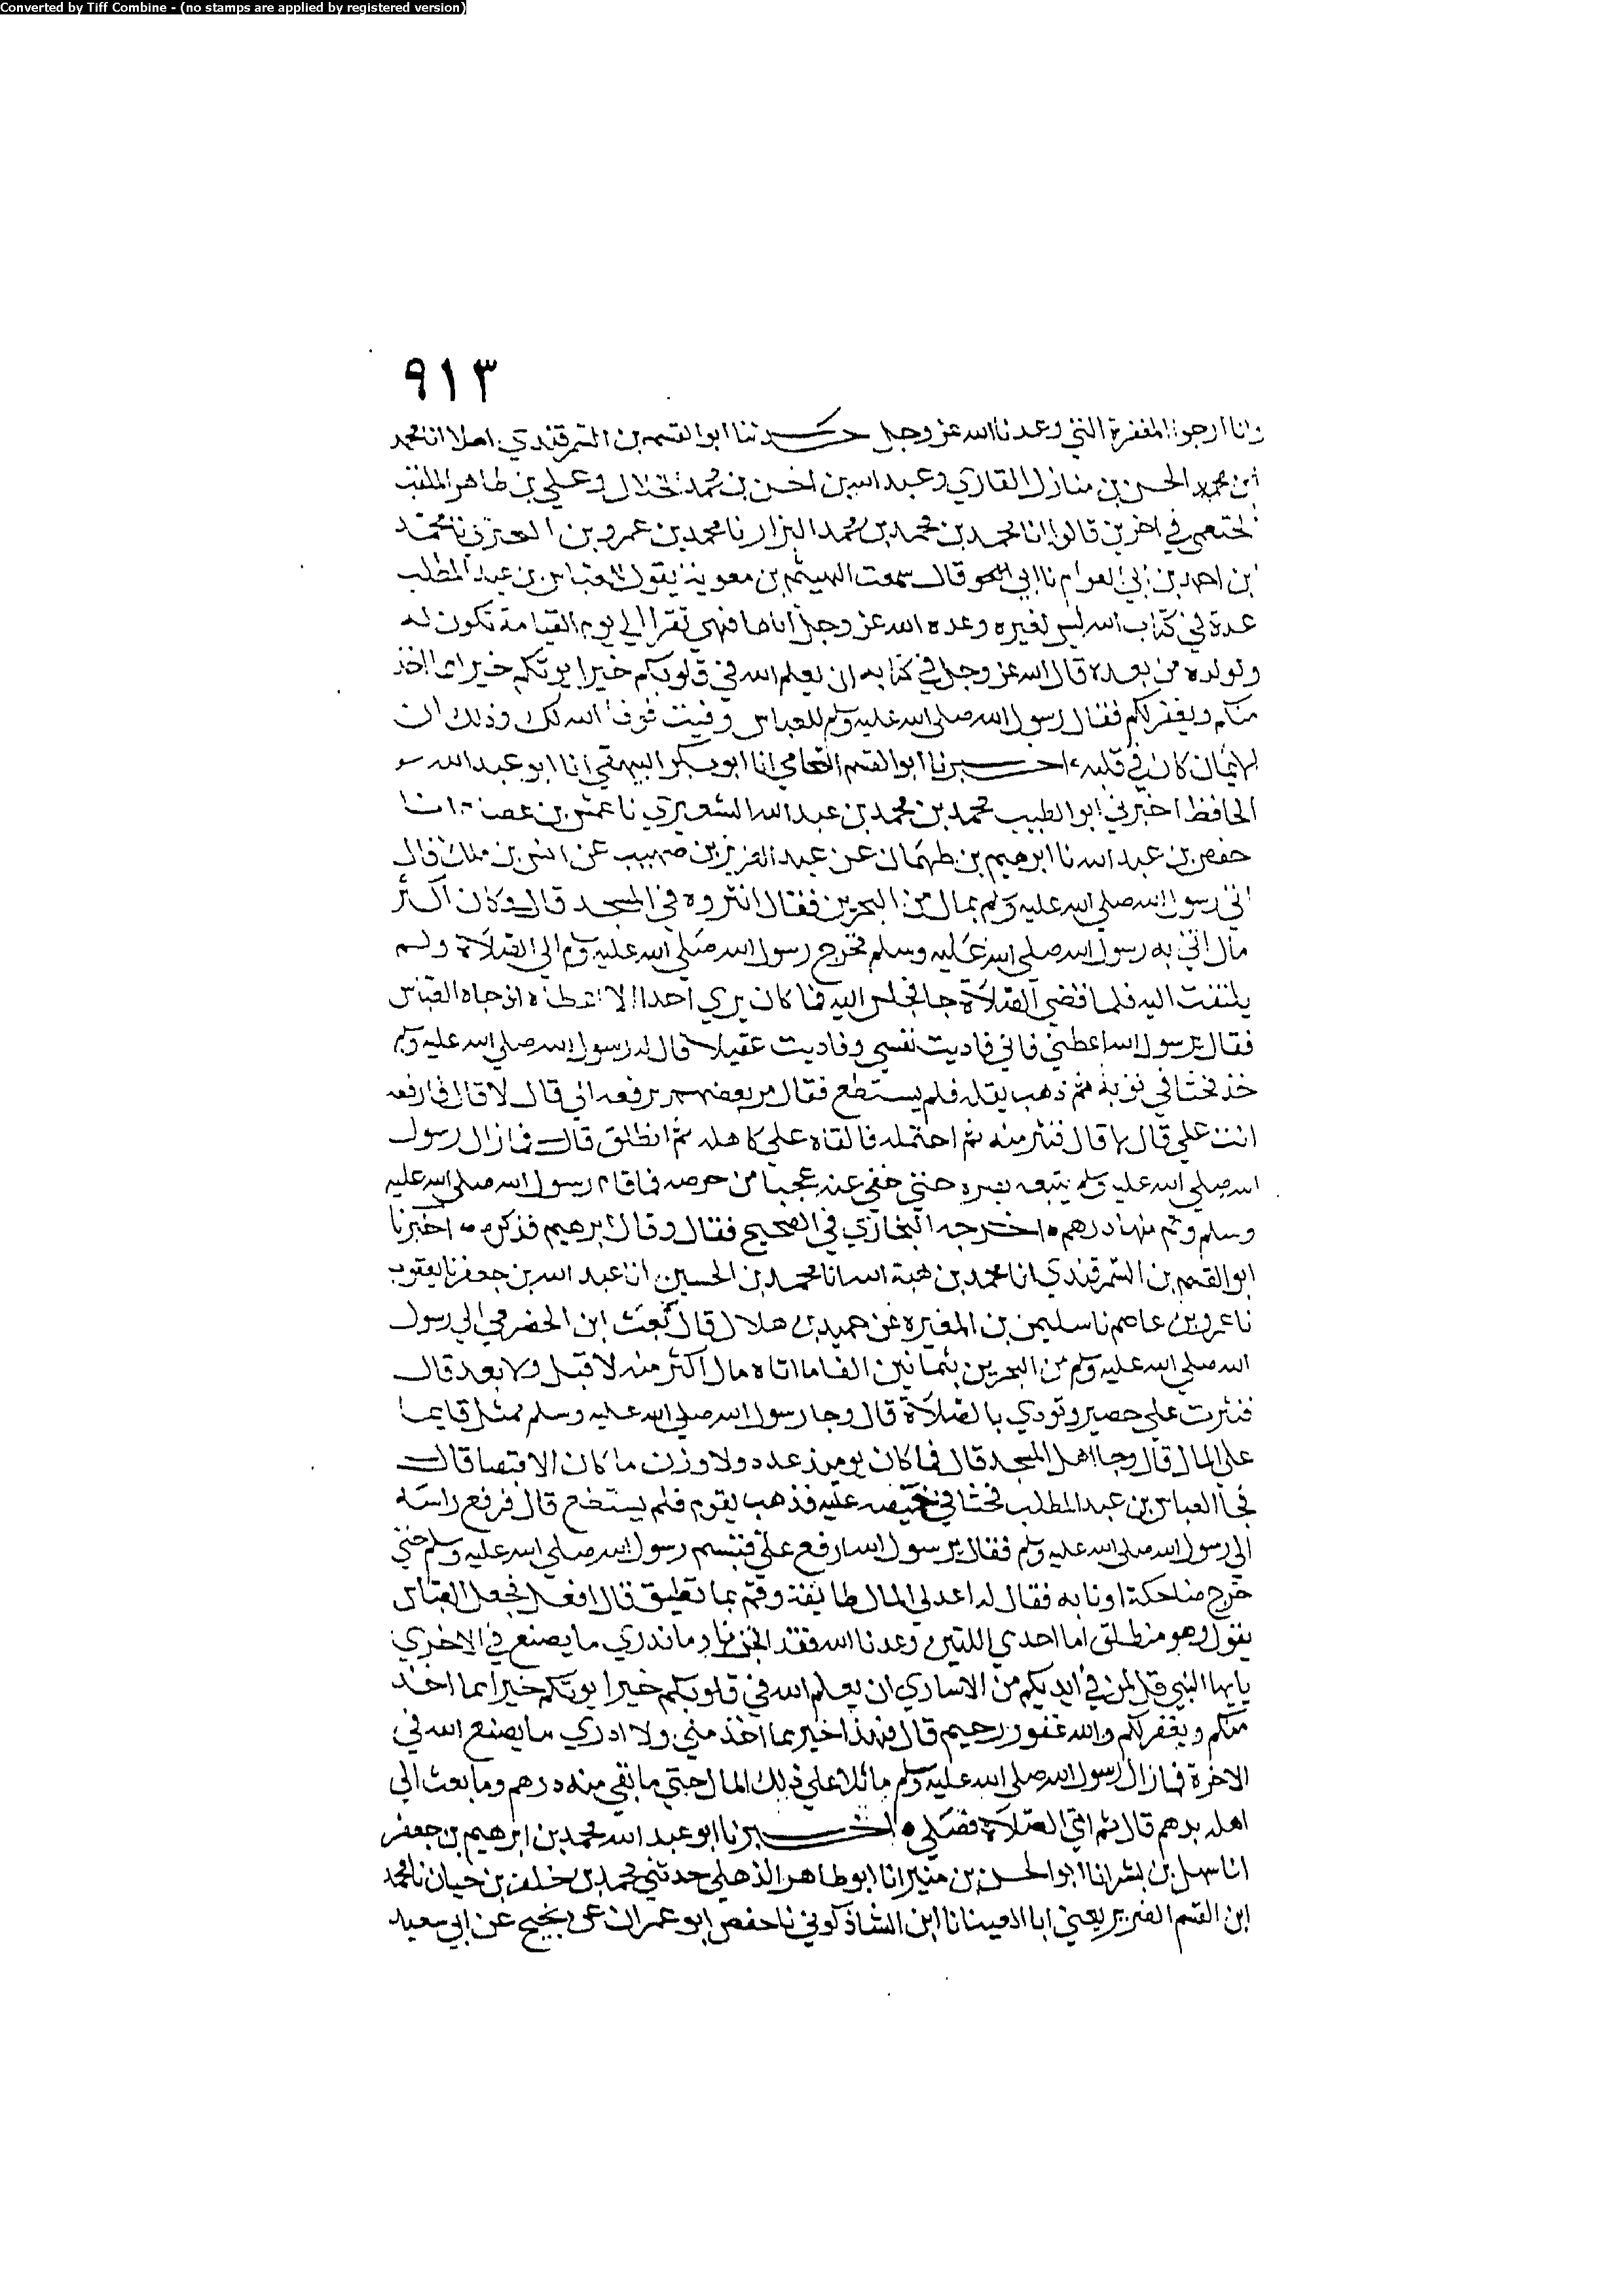 Converted by Tiff Combine - (no stamps are applied by registered version)
٩١٣
وانا ارجوا المغفرة التي وعدنا الله عز وجل حدثنا ابو القسم بن السمرقندي املا انا محمد
ابن محمد الحسن بن منازل القاري وعبد الله بن الحسن بن محمد الخلال وعلي بن طاهر الملقب
في اخرين قالوا انا محمد بن محمد بن محمد البزار نا محمد بن عمرو بن البختري نا محمد
ابن احمد بن ابي العوام نا ابي قال سمعت الهيثم بن معوية يقول للعباس بن عبد المطلب
عدة في كتاب الله ليس لغيره وعده الله عز وجل اياها فهي تقرا الي يوم القيامة تكون له
ولولده من بعده قال الله عز وجل في كتابه ان يعلم الله في قلوبكم خيرا يوتكم خيرا مما اخذ
منكم ويغفر لكم فقال رسول الله صلي الله عليه وسلم للعباس وفيت فوفا الله لك وذلك ان
الايمان كان في قلبه اخبرنا ابو القسم الشحامي انا ابو بكر البيهقي انا ابو عبد الله
الحافظ اخبرني ابو الطيب محمد بن محمد بن عبد الله الشعيري نا محمش بن عصام انا
حفص بن عبد الله نا ابرهيم بن طهمان عن عبد العزيز بن صهيب عن انس بن ملك قال
اتي رسول الله صلي الله عليه وسلم بمال من البحرين فقال انثروه في المسجد قال وكان اكثر
مال اتي به رسول الله صلي الله عليه وسلم فخرج رسول الله صلي الله عليه وسلم الي الصلاة ولم
يلتفت اليه فلما قضي الصلاة جا فجلس اليه فما كان يري احدا الا اعطاه اذ جاه العباس
فقال يرسول الله اعطني فاني فاديت نفسي وفاديت عقيلا قال له رسول الله صلي الله عليه وسلم
خذ فحثا في ثوبه ثم ذهب يقله فلم يستطع فقال مر بعضهم يرفعه الي قال لا قال فارفعه
انت علي قال لا قال فنثر منه ثم احتمله فالقاه علي كاهله ثم انطلق قال فما زال رسول
الله صلي الله عليه وسلم يتبعه بصره حتي خفي عنه عجبا من حرصه فما قام رسول الله صلي الله عليه
وسلم وثم منها درهم اخرجه البخاري في الصحيح فقال وقال ابرهيم فذكره اخبرنا
ابو القسم بن السمرقندي انا محمد بن هبة الله انا محمد بن الحسين انا عبد الله بن جعفر نا يعقوب
نا عمرو بن عاصم نا سليمن بن المغيرة عن حميد بن هلال قال بعث ابن الحضرمي الي رسول
الله صلي الله عليه وسلم من البحرين بثمانين الفا ما اتاه مال اكثر منه لا قبل ولا بعد قال
فنثرت علي حصير ونودي بالصلاة قال وجا رسول الله صلي الله عليه وسلم فمثل قايما
علي المال قال وجا اهل المسجد قال فما كان يومئذ عدد ولا وزن ما كان الا قبصا قال
فجا العباس بن عبد المطلب فحثا في خميصة عليه فذهب يقوم فلم يستطع قال فرفع راسه
الي رسول الله صلي الله عليه وسلم فقال يرسول الله ارفع علي فتبسم رسول الله صلي الله عليه وسلم حتي
خرج ضاحكة او نابه فقال له اعد لي المال طايفة وقم بما تطيق قال افعل فجعل العباس
يقول وهو منطلق اما احدي اللتين وعدنا الله فقد انجزنا وما ندري ما يصنع في الاخري
يايها النبي قل لمن في ايديكم من الاساري ان يعلم الله في قلوبكم خيرا يوتكم خيرا مما اخذ
منكم ويغفر لكم والله غفور رحيم قال فهذا خير مما اخذ مني ولا ادري ما يصنع الله في
الاخرة فما زال رسول الله صلي الله عليه وسلم ماثلا علي ذلك المال حتي ما بقي منه درهم وما بعث الي
اهله بدرهم قال ثم اتي الصلاة فصلي اخبرنا ابو عبد الله محمد بن ابرهيم بن جعفر
انا سهل بن بشر انا ابو الحسن بن منير انا ابو طاهر الذهلي حدثني محمد بن خلف بن حيان نا محمد
ابن القسم الضرير يعني ابا العينا نا ابن الشاذكوني نا حفص ابو عمران عن بجيح عن ابي سعيد